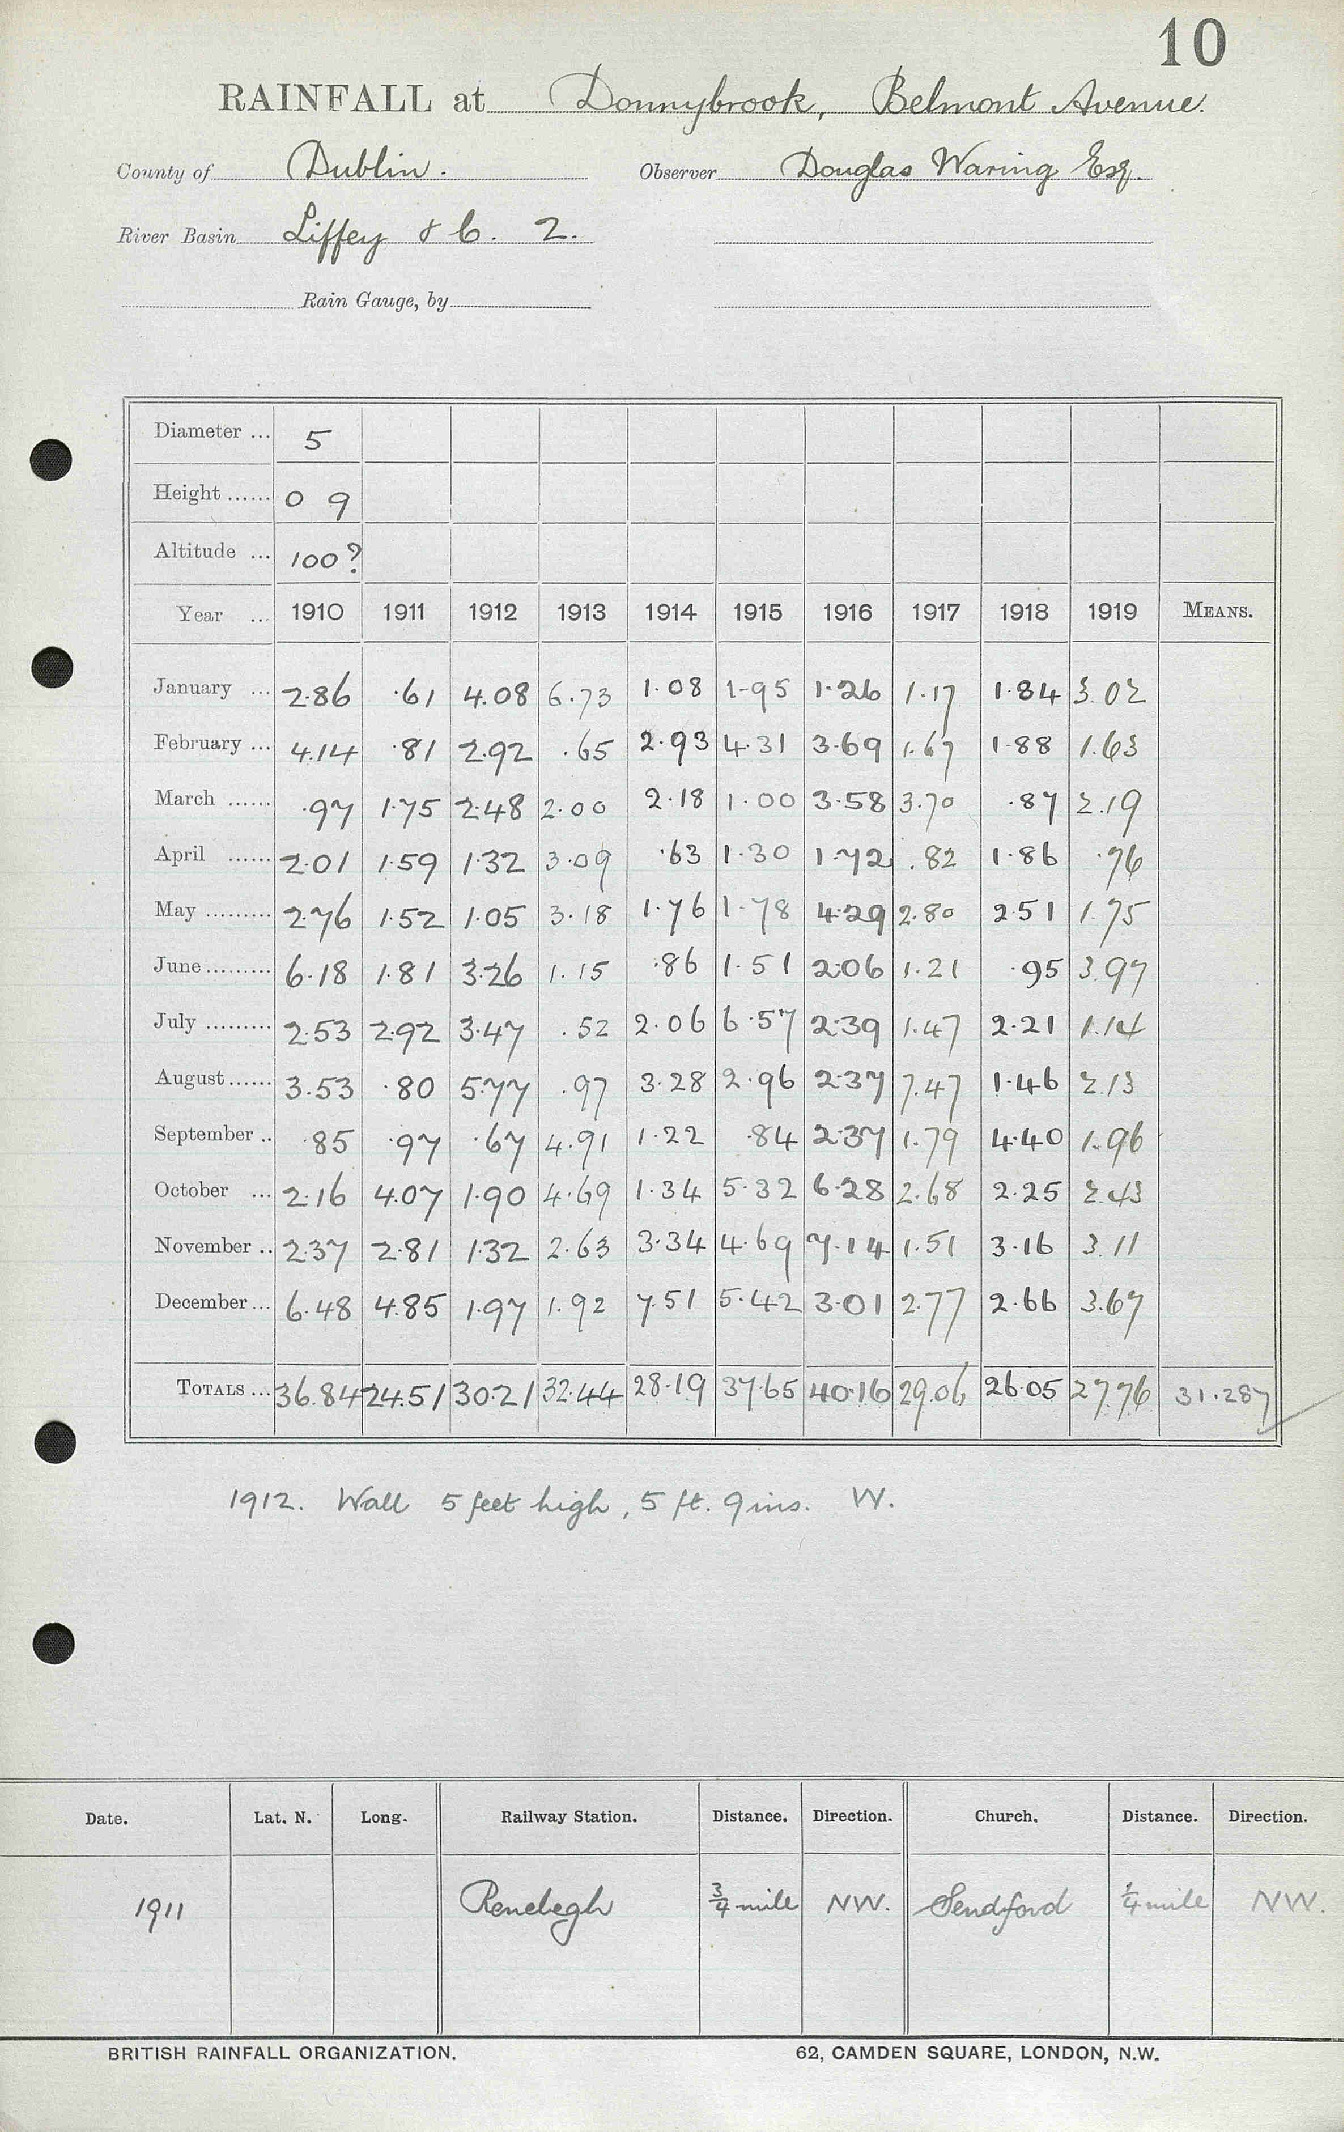 10
RAINFALL at Donnybrook, Belmont Avenue.
County of Dublin. Observer Douglas Waring Esq.
River Basin Liffey & C. 2.
Rain Gauge, by
Diameter ... 5
Height ...... 0 9
Altitude ... 100?
Year ... 1910 1911 1912 1913 1914 1915 1916 1917 1918 1919 MEANS.
January ... 2.86 .61 4.08 6.73 1.08 1.95 1.26 1.17 1.84 3.02
February ... 4.14 .81 2.92 .65 2.93 4.31 3.69 1.67 1.88 1.63
March ...... .97 1.75 2.48 2.00 2.18 1.00 3.58 3.70 .87 2.19
April ...... 2.01 1.59 1.32 3.09 .63 1.30 1.72 .82 1.86 .76
May ......... 2.76 1.52 1.05 3.18 1.76 1.78 4.29 2.80 2.51 1.75
June ......... 6.18 1.81 3.26 1.15 .86 1.51 2.06 1.21 .95 3.97
July ......... 2.53 2.92 3.47 .52 2.06 6.57 2.39 1.47 2.21 1.14
August ...... 3.53 .80 5.77 .97 3.28 2.96 2.37 7.47 1.46 2.13
September .. .85 .97 .67 4.91 1.22 .84 2.37 1.79 4.40 1.96
October ... 2.16 4.07 1.90 4.69 1.34 5.32 6.28 2.68 2.25 2.43
November .. 2.37 2.81 1.32 2.63 3.34 4.69 7.14 1.51 3.16 3.11
December ... 6.48 4.85 1.97 1.92 7.51 5.42 3.01 2.77 2.66 3.67
TOTALS ... 36.84 24.51 30.21 32.44 28.19 37.65 40.16 29.06 26.05 27.76 31.287
1912. Wall 5 feet high, 5 ft. 9 ins. W.
Date. Lat. N. Long. Railway Station. Distance. Direction. Church. Distance. Direction.
1911 Renelegh 3/4 mile NW. Sendford 1/4 mile NW.
BRITISH RAINFALL ORGANIZATION. 62, CAMDEN SQUARE, LONDON, N.W.